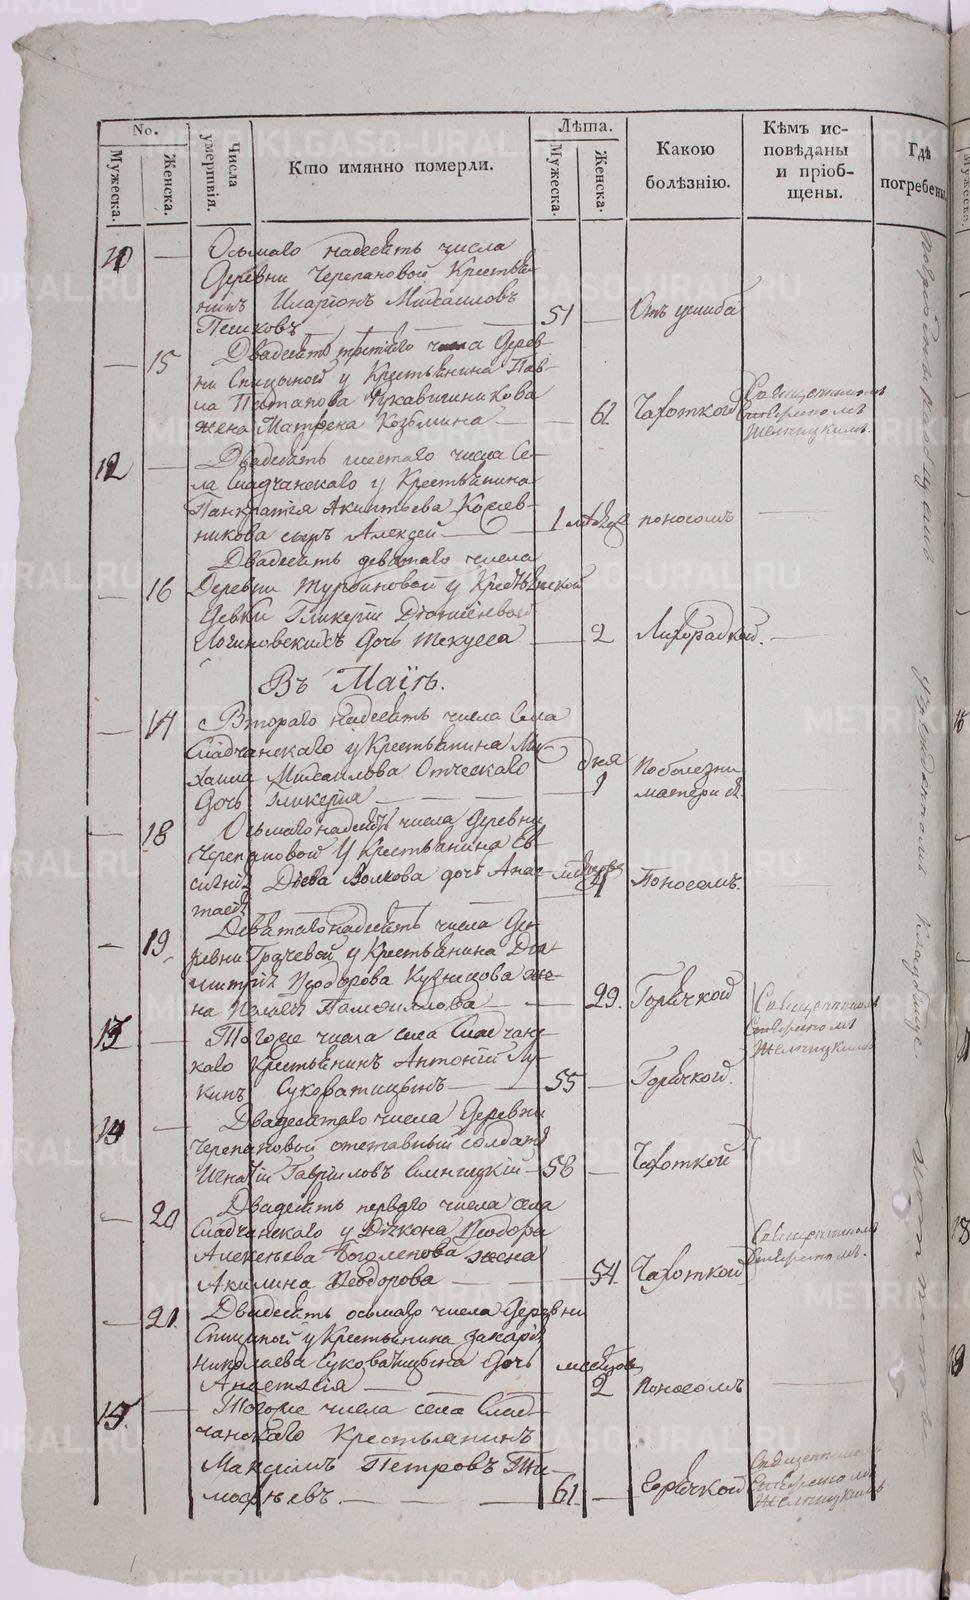 No.
Мужеска.
Женска.
Числа умертвія.
Кто имянно померли.
Лѣта.
Мужеска.
Женска.
Какою болѣзнію.
Кѣмъ ис-
повѣданы
и пріоб-
щены.
Гдѣ
погребены
Осьмаго надесять числа
Деревни Черепановой Крестья-
нинъ Иларіонъ Михаиловъ
Пешковъ 51 Отъ ушиба
15 Двадесять третіяго числа Дерев-
ни Спицыной у Крестьянина Пав-
ла Потапова Рукавишникова
жена Матрена Козьмина 61 Чахоткой Священникомъ
Желницкимъ
12 Двадесять шестаго числа Се-
ла Сладчанскаго у Крестьянина
Панкратія Акинтьева Кожев-
никова сынъ Алексей 1 поносомъ
Двадесять девятаго числа
16 Деревни Турбановой у Крестьянской
Девки Гликеріи Діонисіевой
Логиновскихъ дочь Текуса 2 Лихорадкой.
Въ Маіѣ.
17 Втораго надесять числа села
Сладчанскаго у Крестьянина Ми-
хаила Михаилова Отческаго дня
Дочь Гликерія 1 По болезни
матери ея
18 Осьмагонадесять числа Деревни
Черепановой у Крестьянина Ев-
Волкова дочь Анас-
тасія 4 Поносомъ.
19 Девятагонадесять числа Де-
ревни Грачевой у Крестьянина Ди-
митрія Ѳеодорова Кузнецова же-
на Пелагея Памфилова 29. Горячкой Священникомъ
Желницкимъ
13 Тогоже числа села Сладчанс-
каго Крестьянинъ Антоній Лу-
кинъ Суковатицынъ 55 Горячкой.
14 Двадесятаго числа Деревни
Черепановой отставный солдатъ
Игнатій Гавриловъ 58 Чахоткой
20 Двадесять перваго числа села
Сладчанскаго у Діакона Ѳеодора
Алексѣева Боголепова жена
Акилина Ѳеодорова 54. Чахоткой Священникомъ
21. Двадесять осьмаго числа Деревни
Спицыной у Крестьянина Захарія
Николаева Суковатицына дочь месяцовъ
Анастасія 2 Поносомъ
15. Тогоже числа села Слад-
чанскаго Крестьянинъ
Максимъ Петровъ Ти-
мофѣевъ. 61. Горячкой Священникомъ
Желницкимъ
METRIKI.GASO-URAL.RU